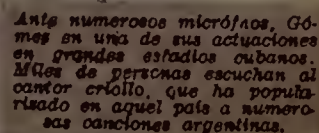 Ante numerosos micrófnos, Gó-
mes en una de sus actuaciones
en grandes estadios cubanos.
Miles de personas escuchan al
cantor criollo, que ha popula-
risado en aquel país a numero-
sas canciones argentinas.